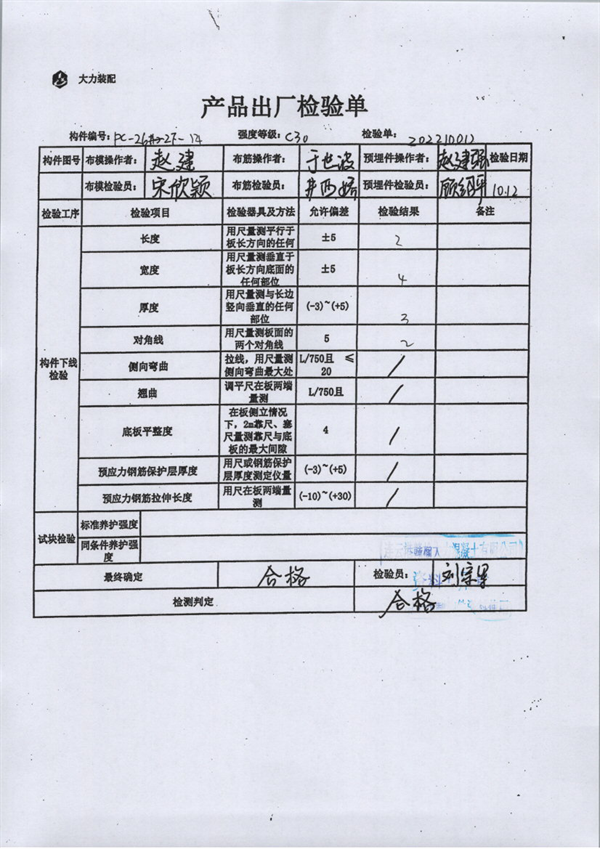 大力装配
产品出厂检验单
构件编号: 强度等级: C30 检验单: 202210012
构件图号 布模操作者: 赵建 布筋操作者: 于世波 预埋件操作者: 赵建强 检验日期
布模检验员: 宋欣颖 布筋检验员: 预埋件检验员: 10.12
检验工序 检验项目 检验器具及方法 允许偏差 检验结果 备注
构件下线检验
长度 用尺量测平行于板长方向的任何 ±5 2
宽度 用尺量测垂直于板长方向底面的任何部位 ±5 4
厚度 用尺量测与长边竖向垂直的任何部位 (-3)~(+5) 3
对角线 用尺量测板面的两个对角线 5 2
侧向弯曲 拉线，用尺量测侧向弯曲最大处 L/750且 ≤20 /
翘曲 调平尺在板两端量测 L/750且 /
底板平整度 在板侧立情况下，2m靠尺、塞尺量测靠尺与底板的最大间隙 4 /
预应力钢筋保护层厚度 用尺或钢筋保护层厚度测定仪量 (-3)~(+5) /
预应力钢筋拉伸长度 用尺在板两端量测 (-10)~(+30) /
试块检验 标准养护强度
同条件养护强度
最终确定 合格 检验员:
检测判定 合格